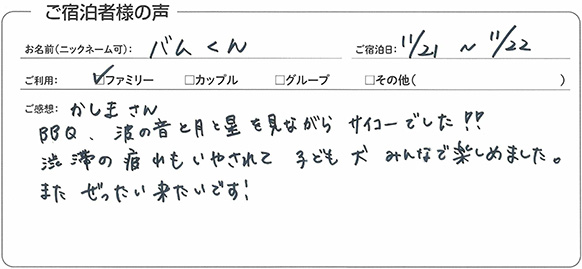 ご宿泊者様の声
お名前(ニックネーム可): バムくん ご宿泊日: 11/21 〜 11/22
ご利用: ☑ファミリー □カップル □グループ □その他( )
ご感想: かしまさん
BBQ、波の音と月と星を見ながら サイコーでした!!
渋滞の疲れもいやされて 子ども 犬 みんなで楽しめました。
また ぜったい来たいです!